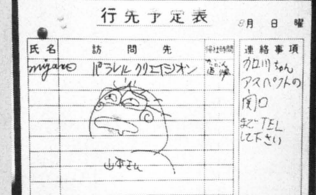 行先予定表
月 日 曜
氏名 訪問先 帰社時間 連絡事項
miyano パラレルクリエイション
加沢ちゃん
アスペクトの
関口
までTEL
して下さい
山本さん